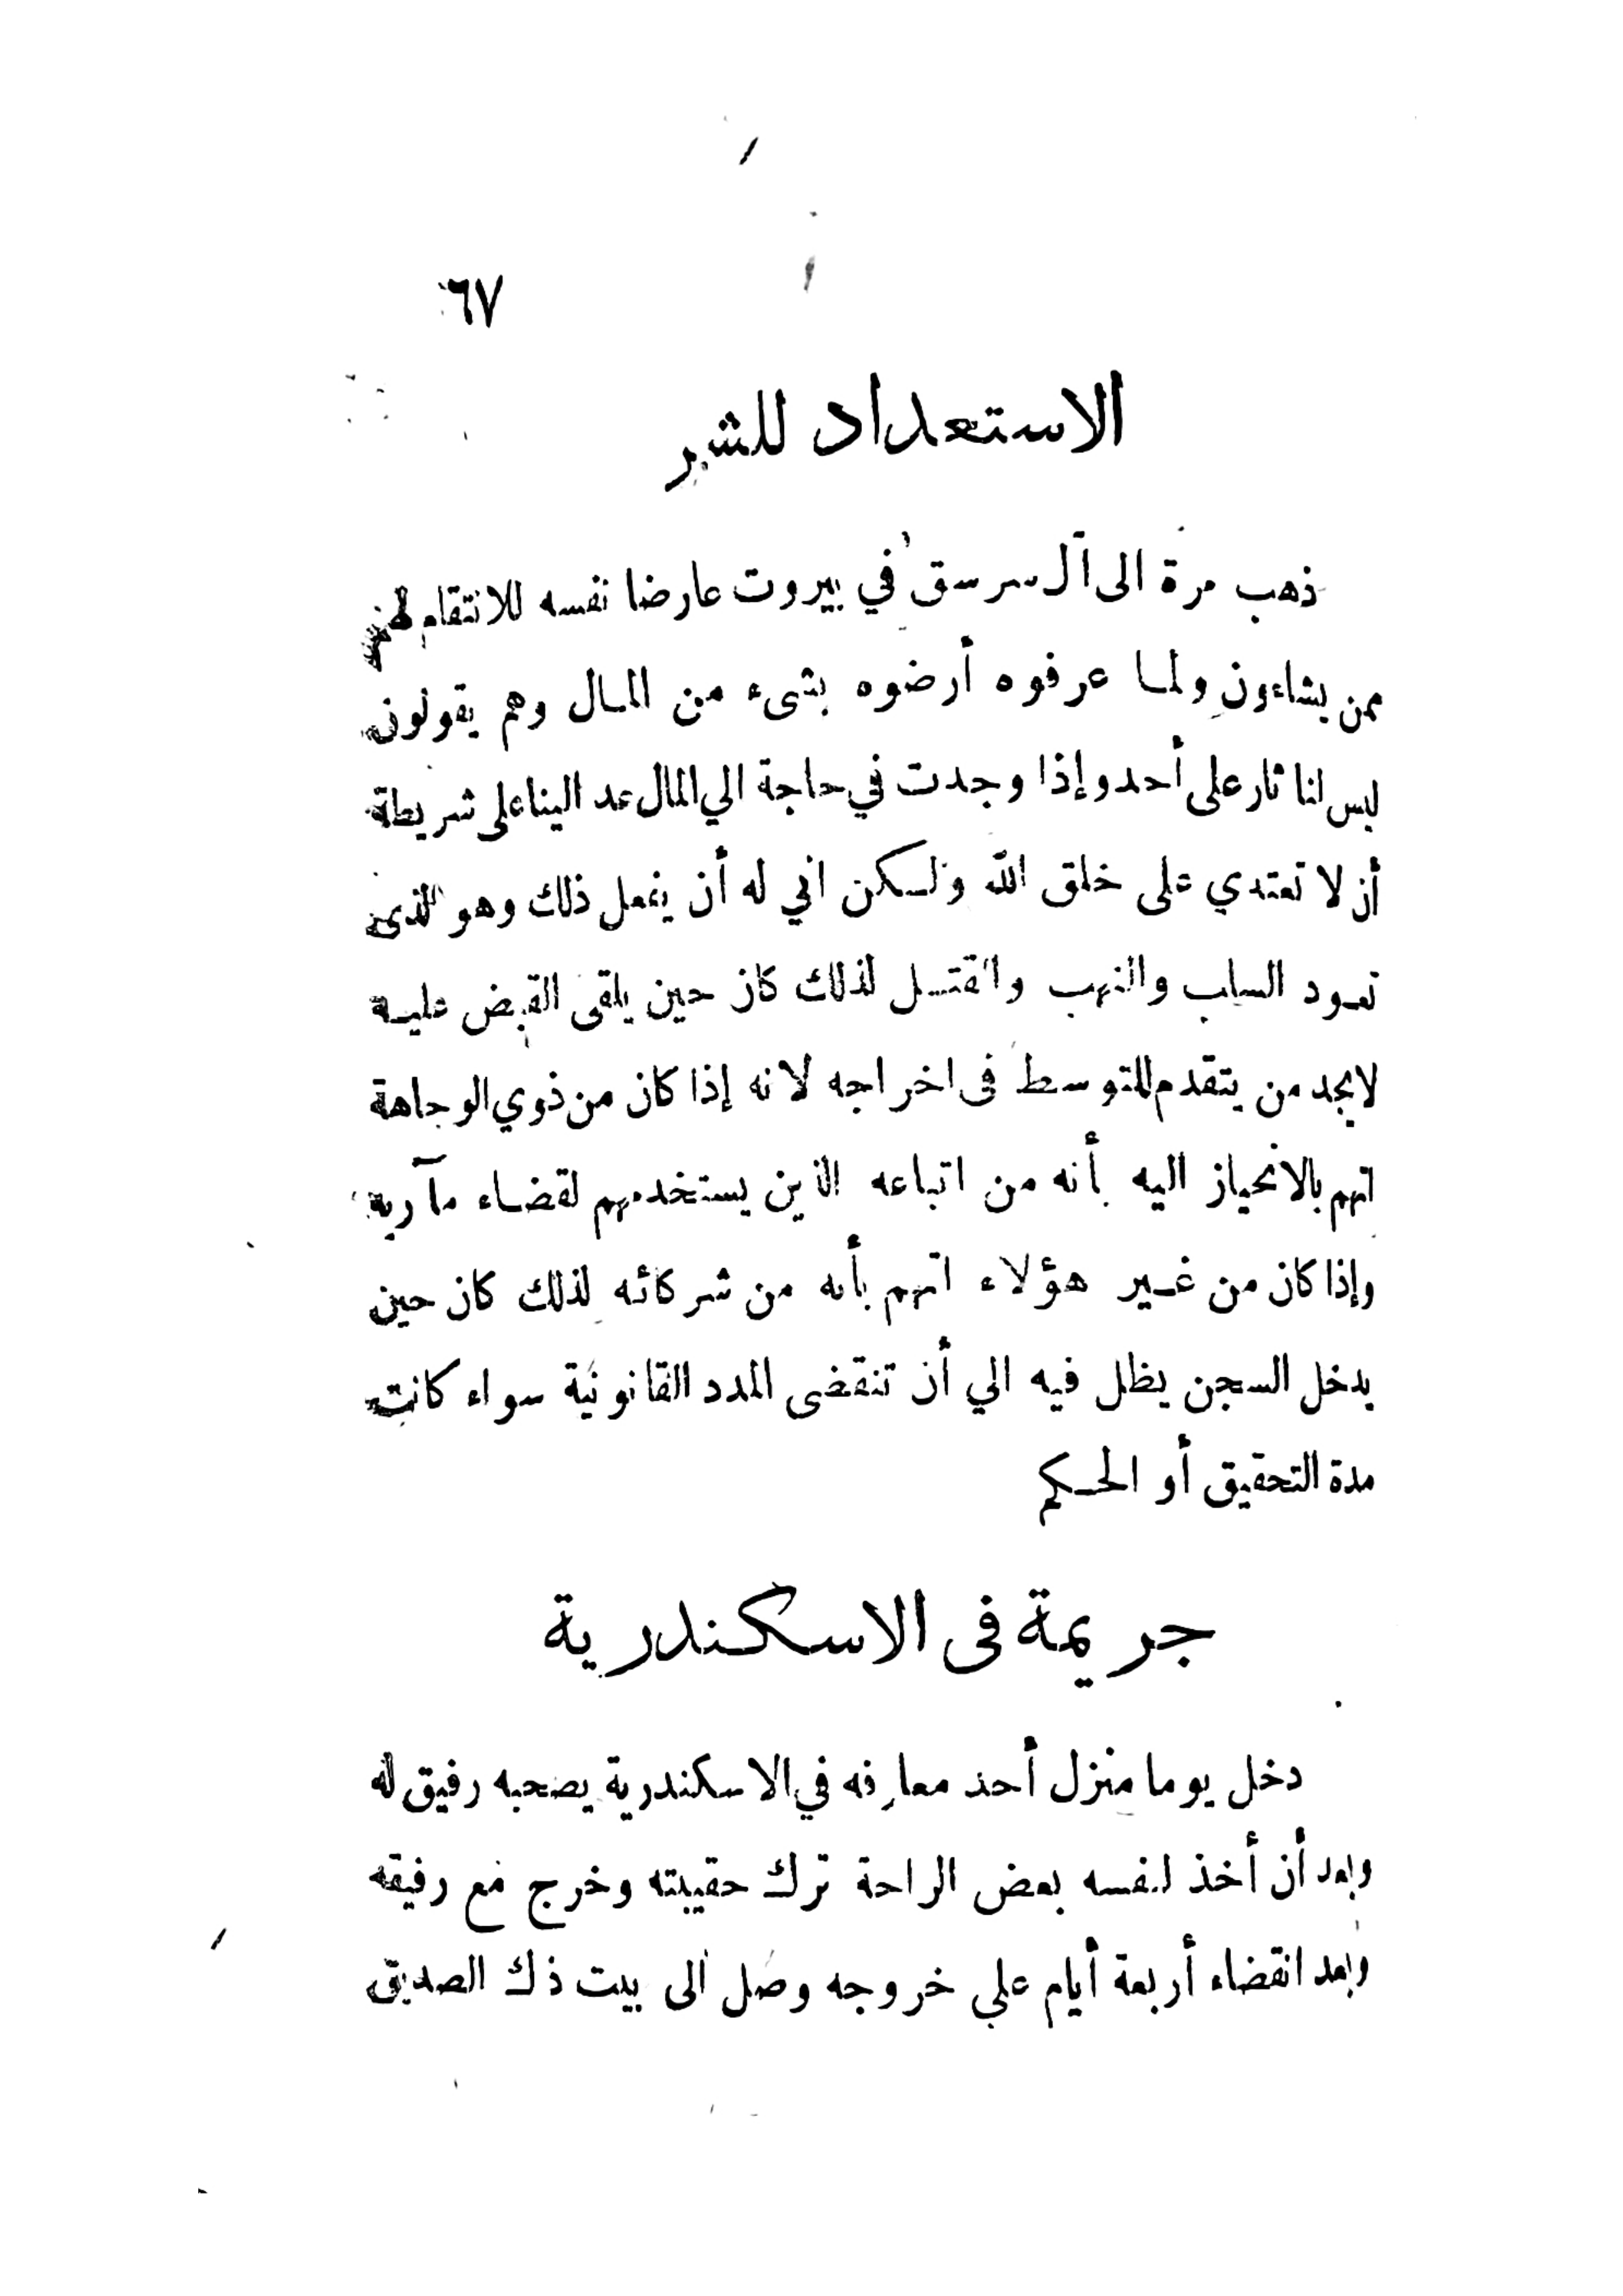 ٦٧
الاستعداد للشر
ذهب مرة الى آل سرسق في بيروت عارضا نفسه للانتقام لهم
ممن يشاءون ولما عرفوه أرضوه بشىء من المال وهم يقولون
ليس لنا ثار على أحد وإذا وجدت في حاجة الي المال عد الينا على شريطة
أن لا تعتدي على خلق الله ولكن اني له أن يفعل ذلك وهو الذى
تعود السلب والنهب والقتل لذلك كان حين يلقى القبض عليه
لا يجد من يتقدم للتوسط فى اخراجه لانه إذا كان من ذوي الوجاهة
اتهم بالانحياز اليه بأنه من اتباعه الذين يستخدمهم لقضاء مآربه
وإذا كان من غير هؤلاء اتهم بأنه من شركائه لذلك كان حين
يدخل السجن يظل فيه الي أن تنقضى المدد القانونية سواء كانت
مدة التحقيق أو الحكم
جريمة فى الاسكندرية
دخل يوما منزل أحد معارفه في الاسكندرية يصحبه رفيق له
وبعد أن أخذ لنفسه بعض الراحة ترك حقيبته وخرج مع رفيقه
وبعد انقضاء أربعة أيام علي خروجه وصل الى بيت ذك الصديق